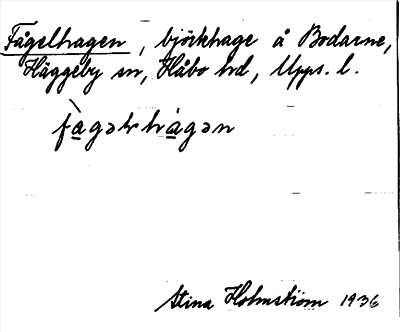 Fågelhagen, björkhage å Bodarne,
Häggeby sn, Håbo hd, Upps. l.
fàgəlhágən
Stina Holmström 1936